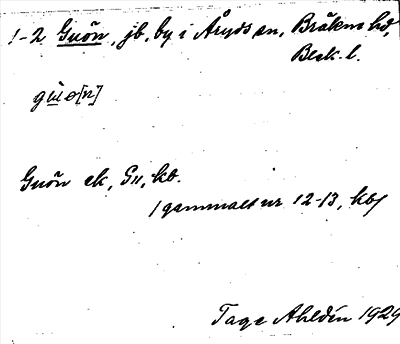 1-2 Guön, jb, by i Åryds sn, Bräkne hd,
Blek. l.
gùø[n]
Guön ek, Gu, kb.
/gammalt nr 12-13, kb/
Tage Ahldén 1929